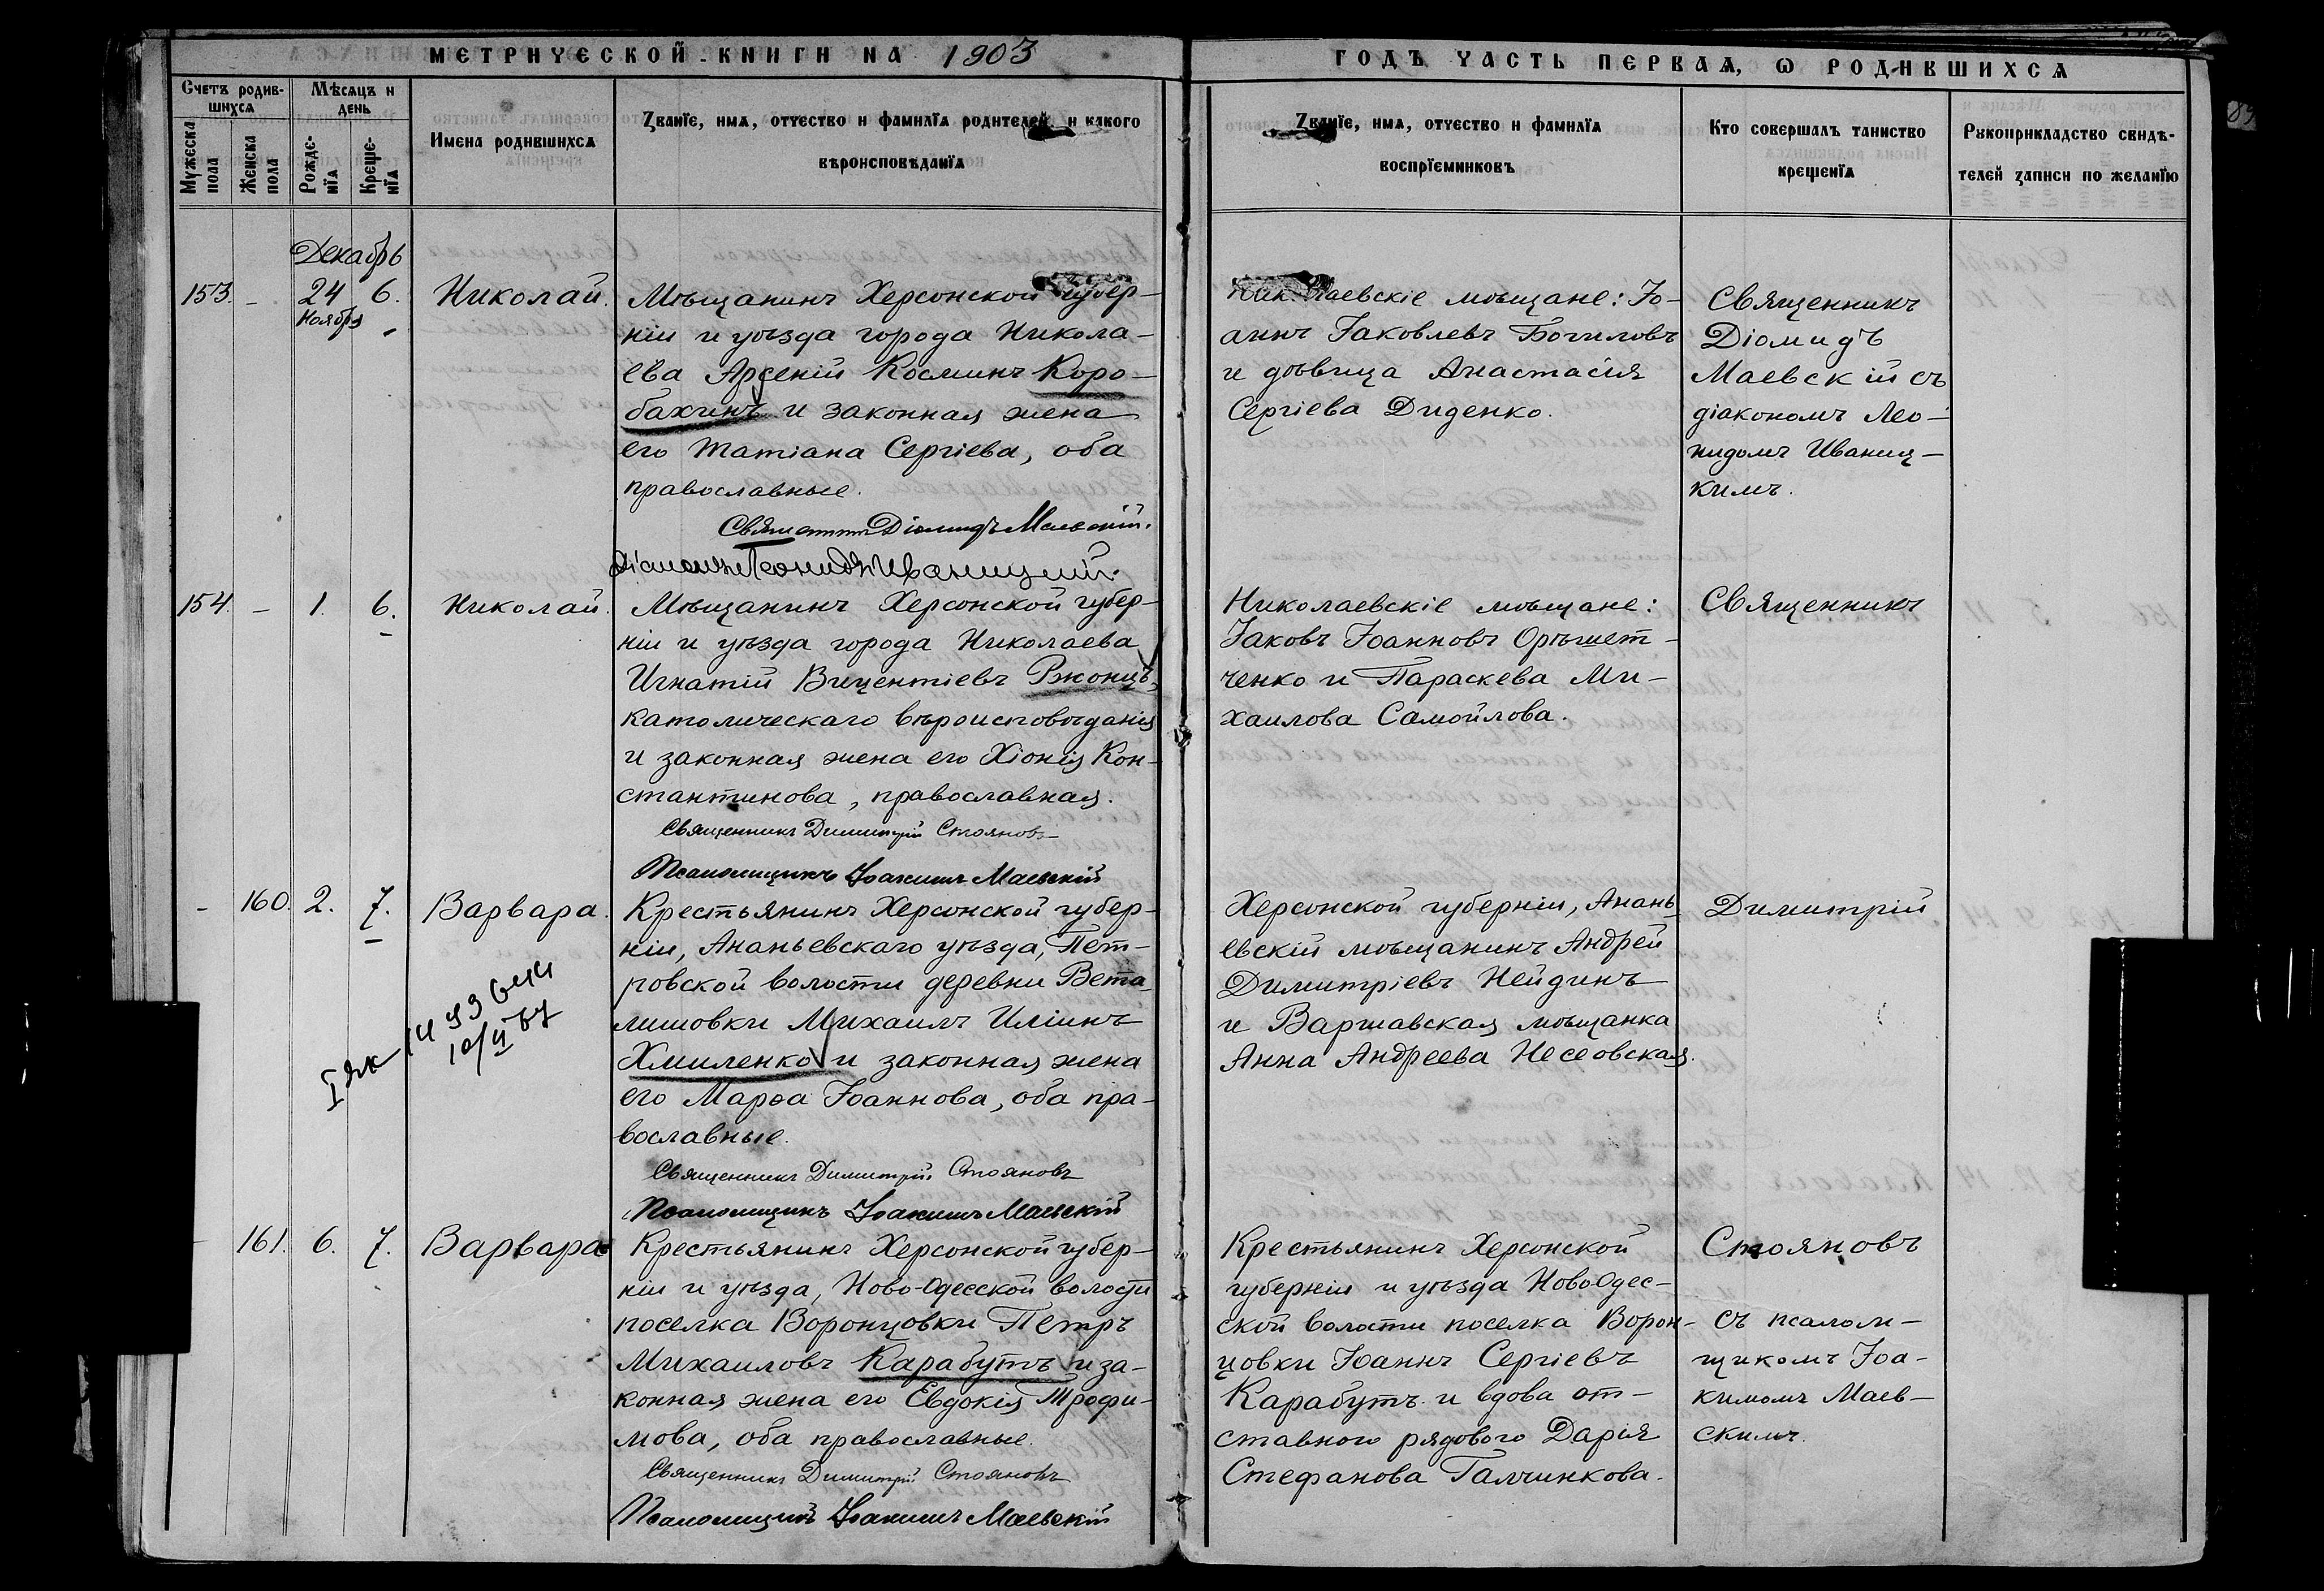 МЕТРИЧЕСКОЙ КНИГИ НА 1903
ГОДЪ ЧАСТЬ ПЕРВАЯ, Ѡ РОДИВШИХСЯ
Счетъ родив-
шихся
Мѣсяцъ и
день
Мужеска
пола
Женска
пола
Рожде-
нїя
Креще-
нїя
Имена родившихся
Званїе, имя, отчество и фамилїя родителей, и какого
вѣроисповѣданїя
Званїе, имя, отчество и фамилїя
воспрїемниковъ
Кто совершалъ таинство
крещенїя
Рукоприкладство свидѣ-
телей записи по желанїю
Декабрь
153. - 24 6. Николай.
Ноября
Мѣщанинъ Херсонской губер-
ніи и уѣзда города Никола-
ева Арсеній Косминъ Коро-
бахинъ и законная жена
его Татіана Сергіева, оба
православные.
Діомидъ Маевскій.
Діаконъ Леонидъ Иваницкій.
Николаевскіе мѣщане: Іо-
аннъ Іаковлевъ Бочиловъ
и дѣвица Анастасія
Сергіева Диденко.
Священникъ
Діомидъ
Маевскій съ
діакономъ Лео-
нидомъ Иваниц-
кимъ.
154. - 1. 6. Николай.
Мѣщанинъ Херсонской губер-
ніи и уѣзда города Николаева
Игнатій Вицентіевъ Ржонцъ,
католическаго вѣроисповѣданія
и законная жена его Хіонія Кон-
стантинова, православная.
Священникъ Димитрій Стояновъ
Псаломщикъ Іоакимъ Маевскій
Николаевскіе мѣщане:
Іаковъ Іоанновъ Орѣшет-
ченко и Параскева Ми-
хаилова Самойлова.
Священникъ
- 160. 2. 7. Варвара.
Крестьянинъ Херсонской губер-
ніи, Ананьевскаго уѣзда, Пет-
ровской волости деревни Вета-
лишовки Михаилъ Иліинъ
Хмиленко и законная жена
его Марѳа Іоаннова, оба пра-
вославные.
Священникъ Димитрій Стояновъ
Псаломщикъ Іоакимъ Маевскій
Херсонской губерніи, Анань-
евскій мѣщанинъ Андрей
Димитріевъ Нейдинъ
и Варшавская мѣщанка
Анна Андреева Несеовская.
Димитрій
- 161. 6. 7. Варвара
Крестьянинъ Херсонской губер-
ніи и уѣзда, Ново-Одесской волости
поселка Воронцовки Петръ
Михаиловъ Карабутъ и за-
конная жена его Евдокія Трофи-
мова, оба православные.
Священникъ Димитрій Стояновъ
Псаломщикъ Іоакимъ Маевскій
Крестьянинъ Херсонской
губерніи и уѣзда Ново-Одес-
ской волости поселка Ворон-
цовки Іоаннъ Сергіевъ
Карабутъ и вдова от-
ставного рядового Дарія
Стефанова Галчинкова.
Стояновъ
съ псалом-
щикомъ Іоа-
кимомъ Маев-
скимъ.